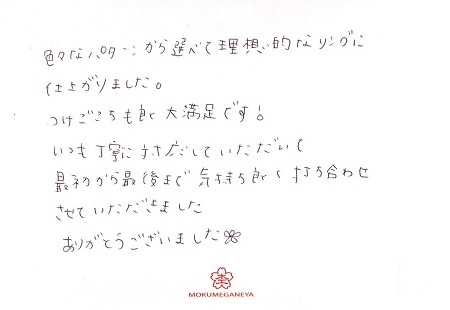 色々なパターンから選べて理想的なリングに
仕上がりました。
つけごこちも良く大満足です！
いつも丁寧に対応していただいて
最初から最後まで気持ち良く打ち合わせ
させていただきました
ありがとうございました
MOKUMEGANEYA